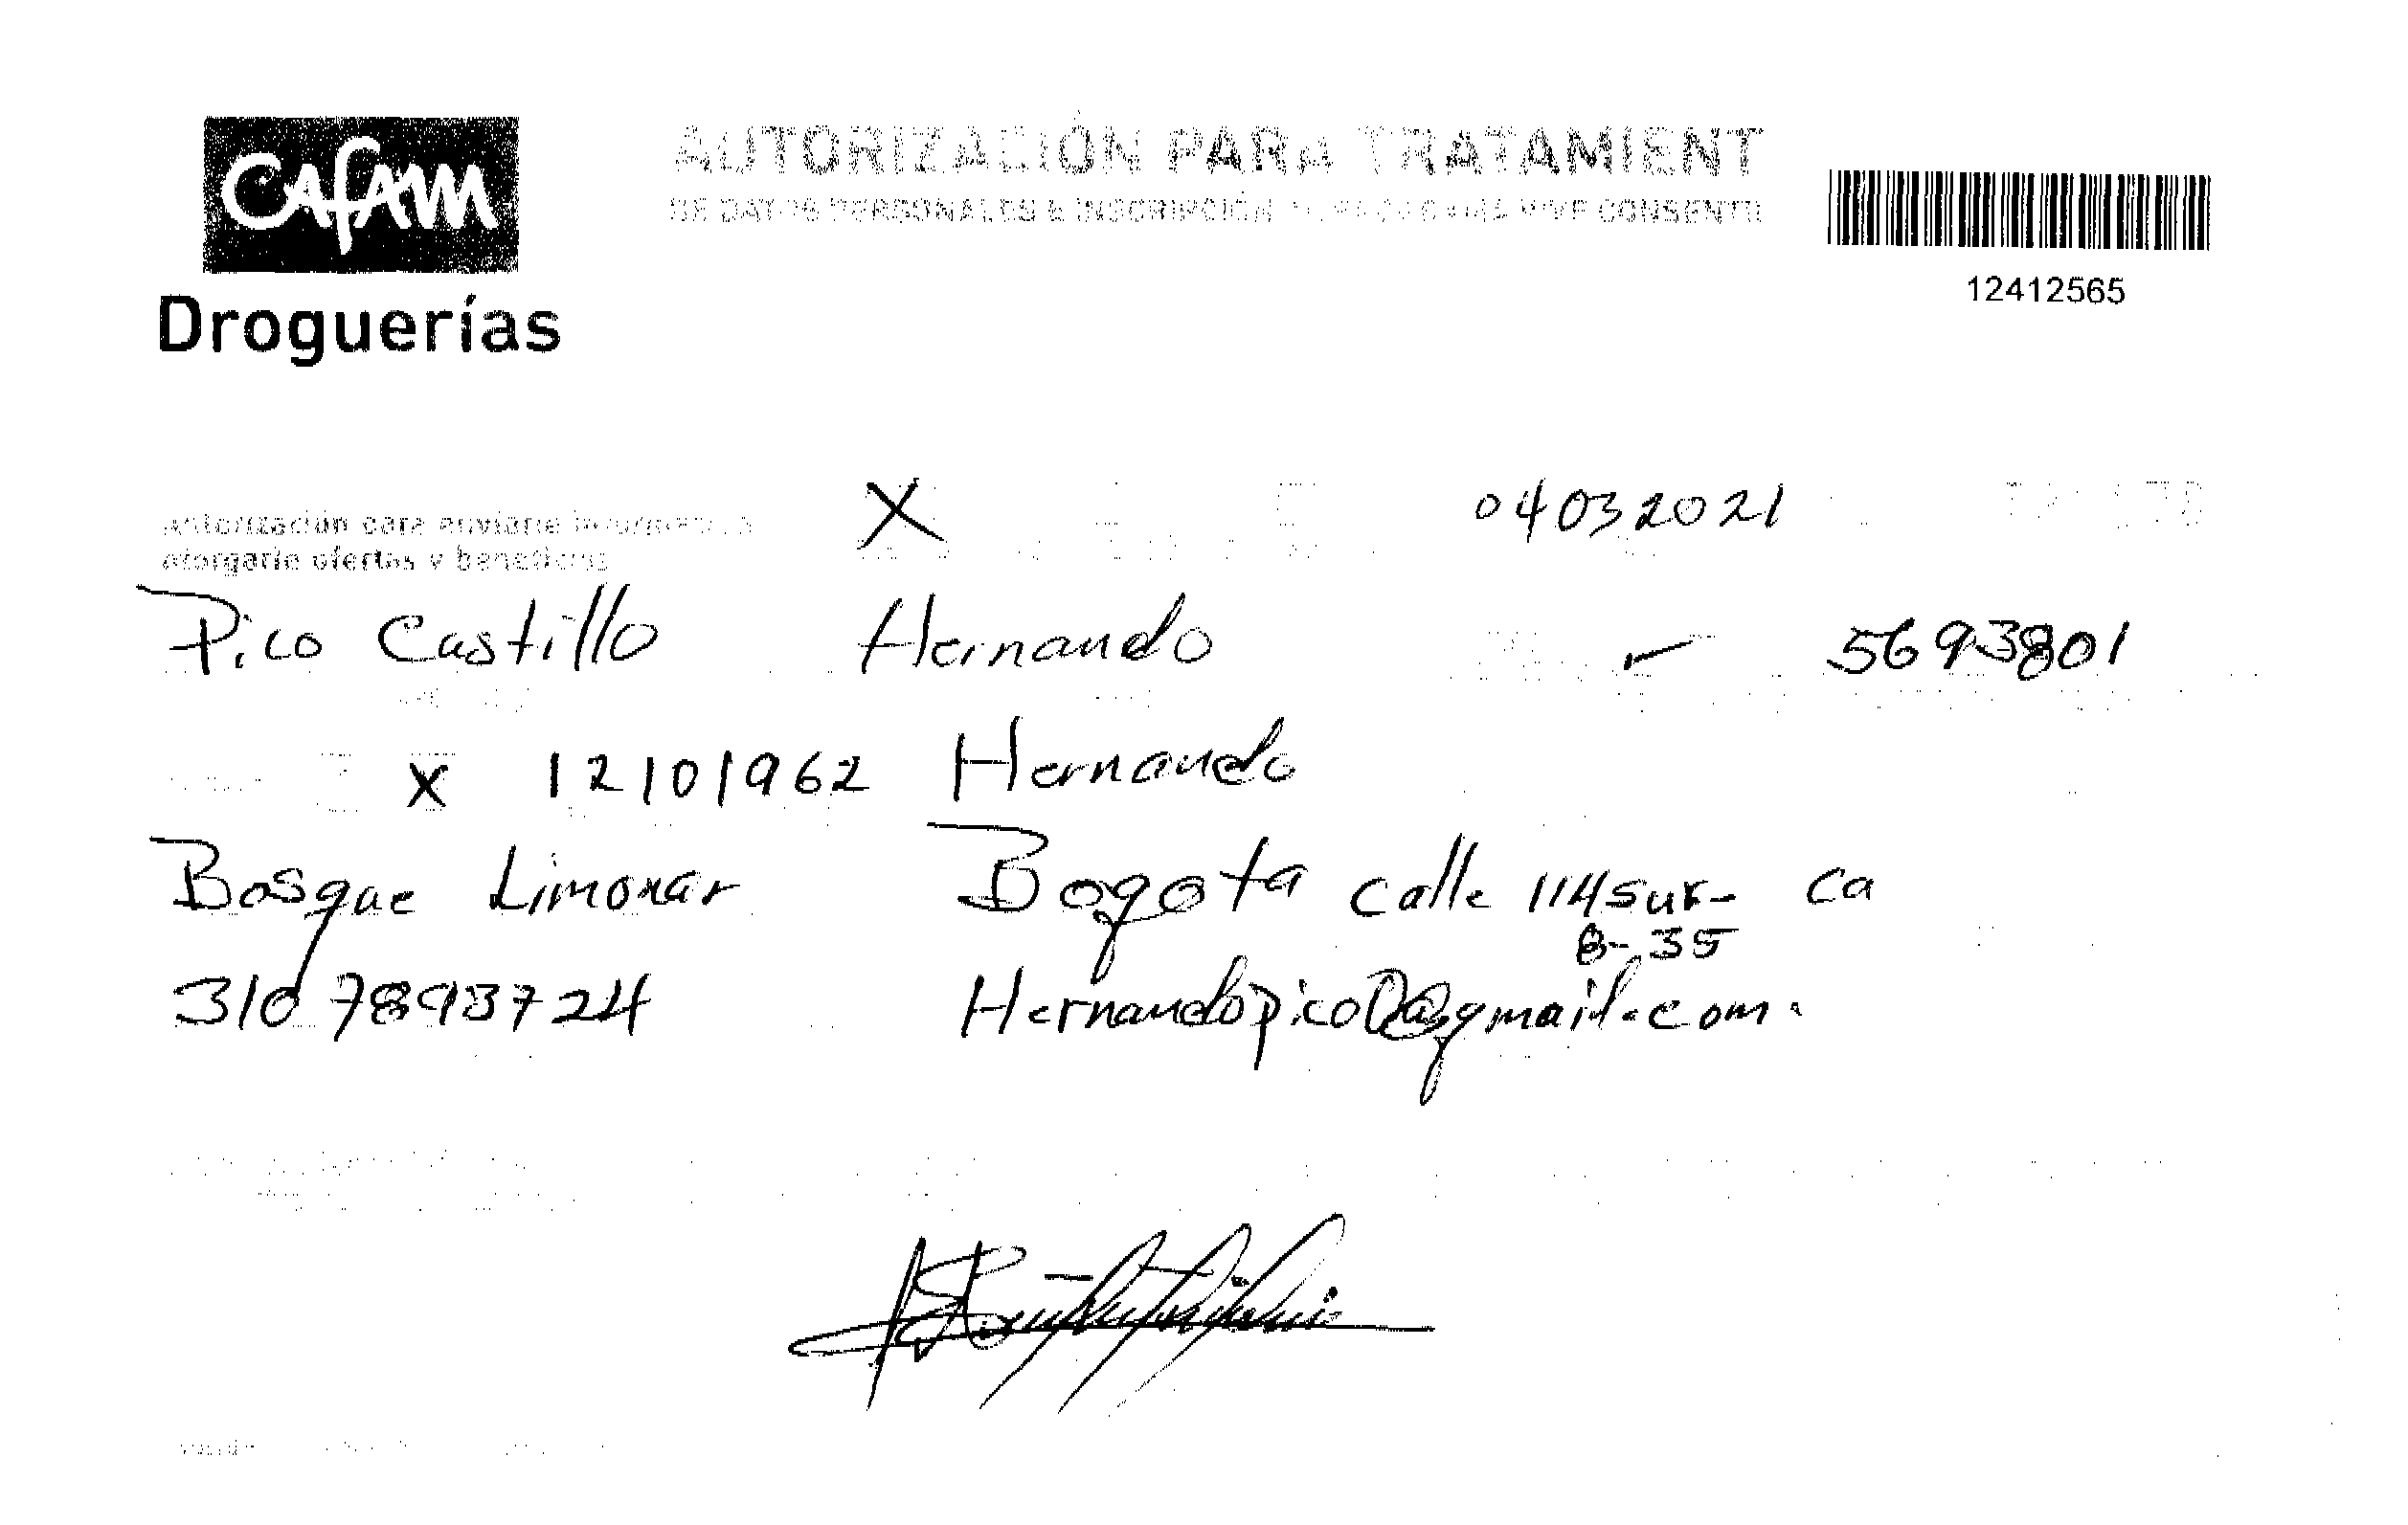 CAFAM
Droguerías
AUTORIZACIÓN PARA TRATAMIENT
DE DATOS PERSONALES E INSCRIPCIÓN VIVE CONSENTI
12412565
Autorización para enviarle
otorgarle ofertas y beneficios
X 04032021
Pico Castillo Hernando 5693801
X 12101962 Hernando
Bosque Limonar Bogota calle 114 sur- ca
8-35
310 7893724 @gmail.com.